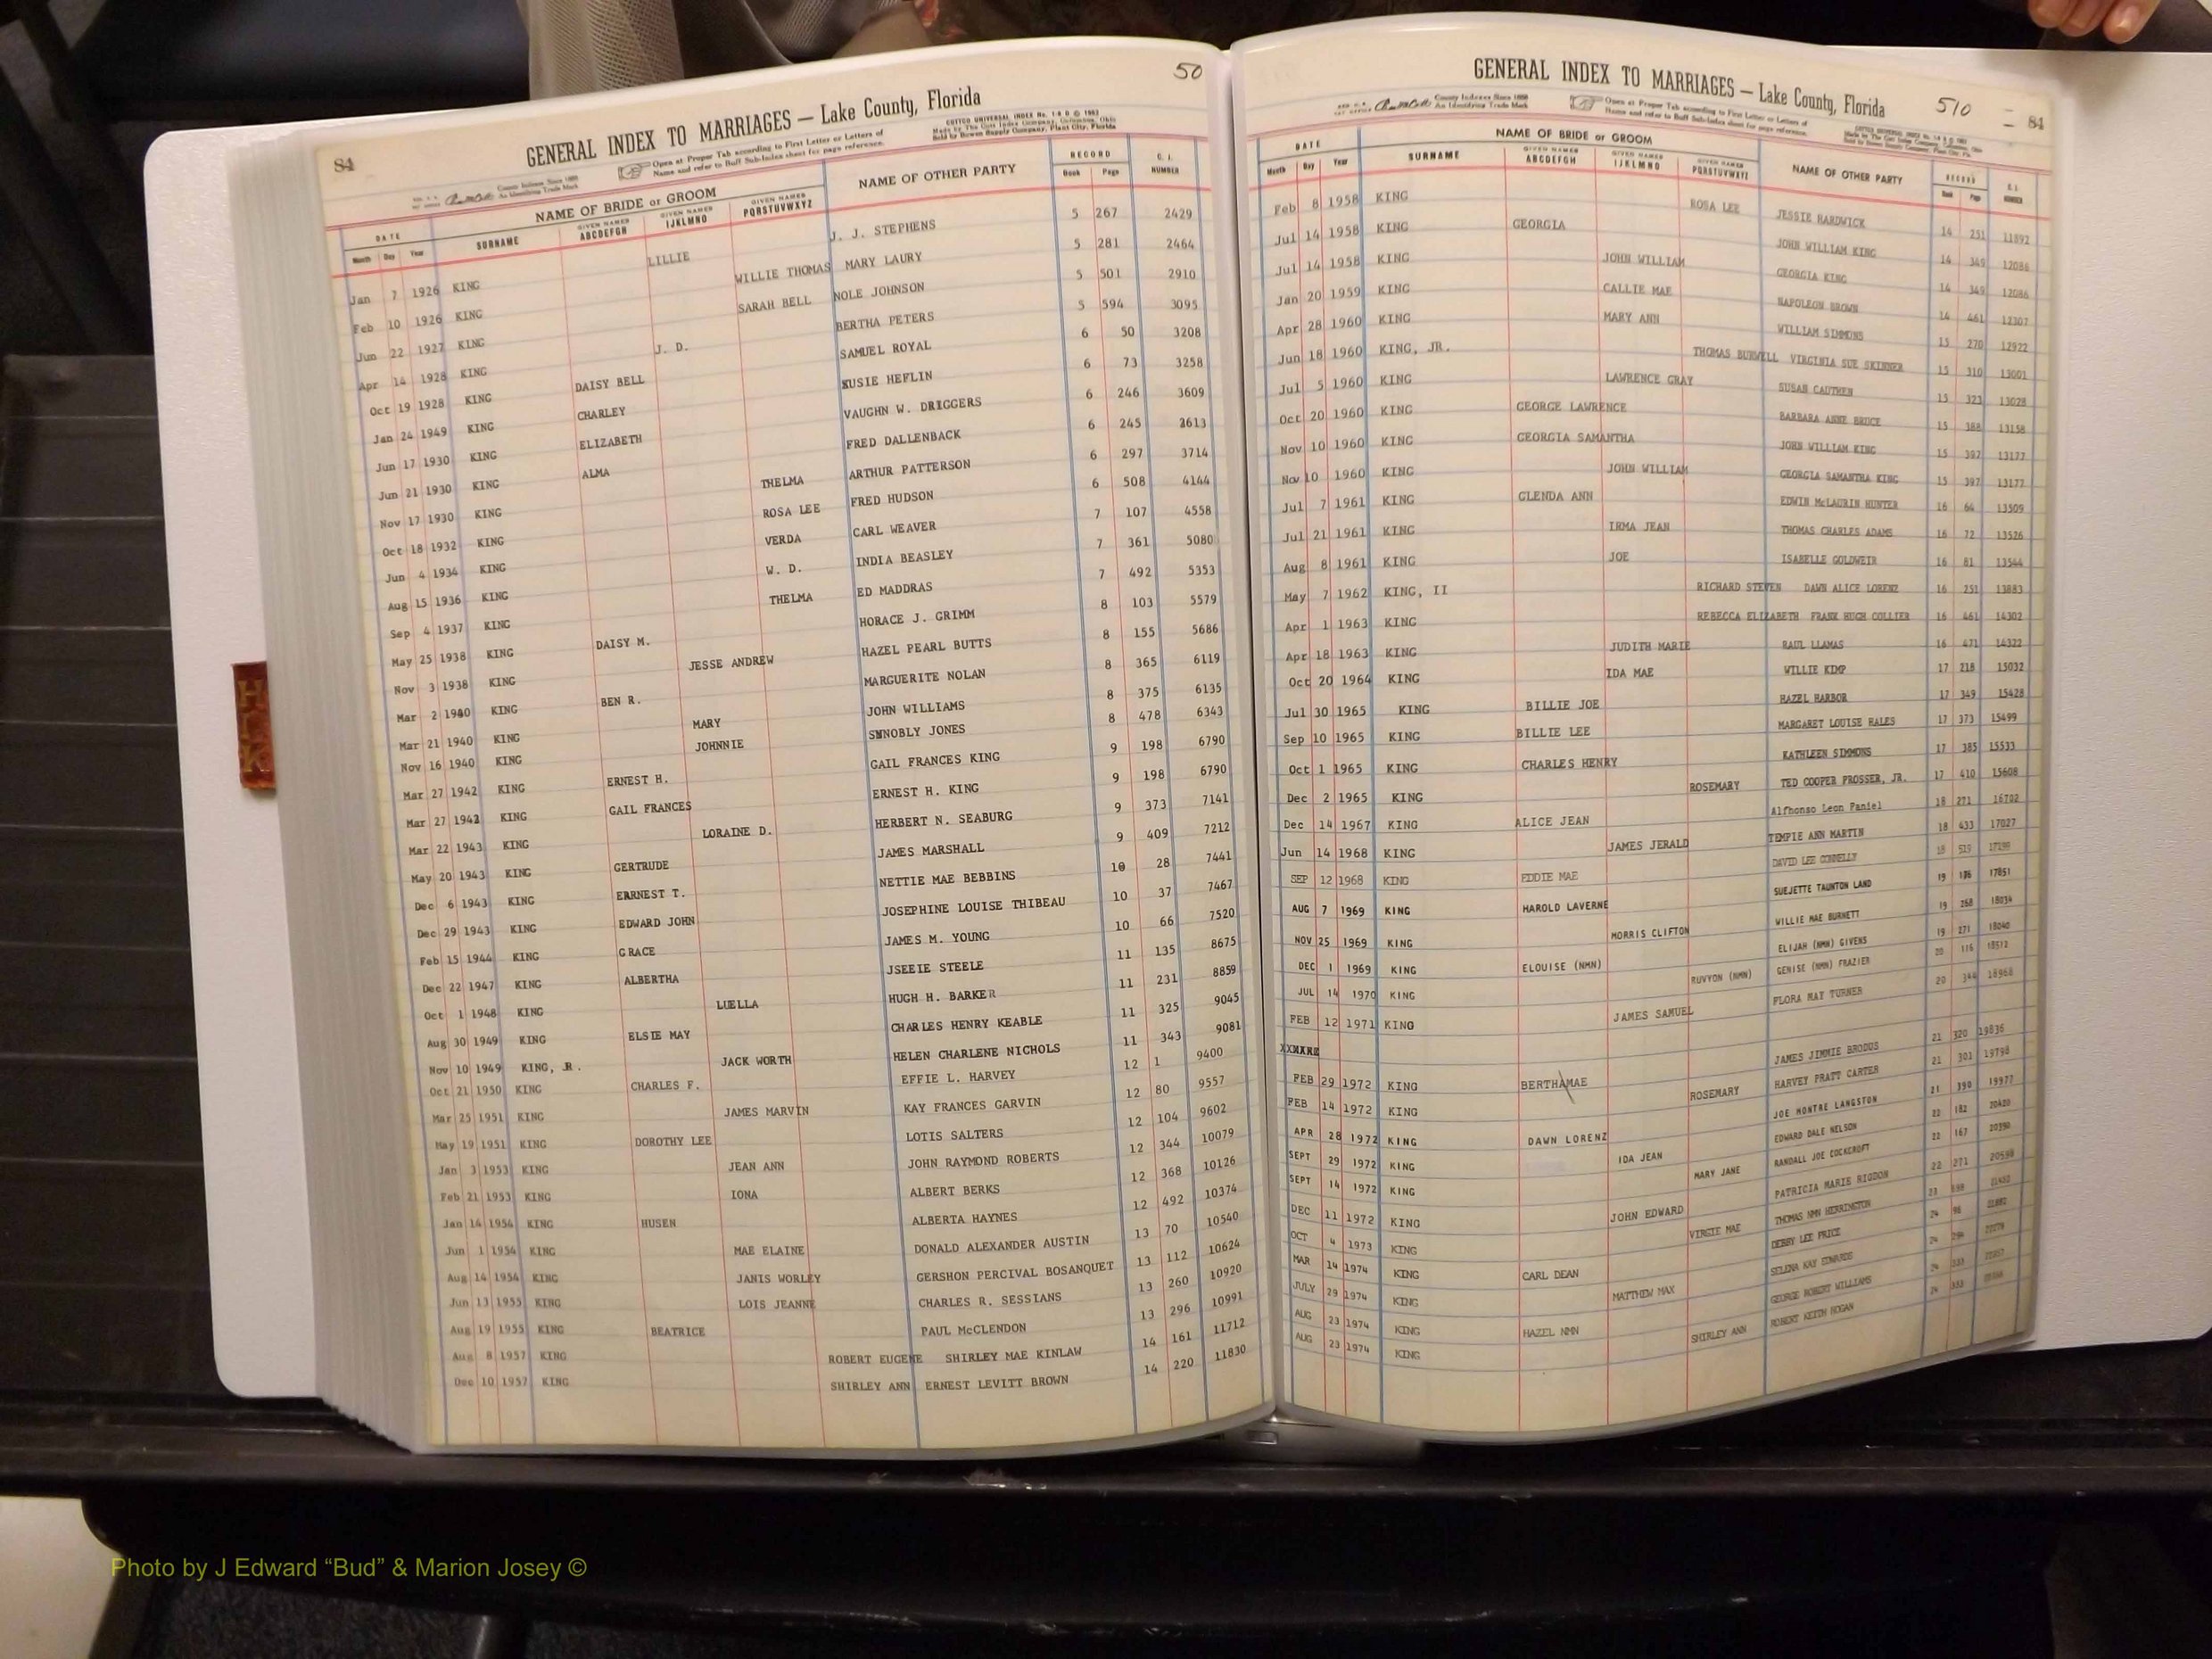 84 50
GENERAL INDEX TO MARRIAGES — Lake County, Florida
County Indexes Since 1888 An Identifying Trade Mark
Open at Proper Tab according to First Letter or Letters of Name and refer to Buff Sub-Index sheet for page reference.
COTTCO UNIVERSAL INDEX
Made by The Cott Index Company, Columbus, Ohio
Sold by Bowen Supply Company, Plant City, Florida
DATE NAME OF BRIDE or GROOM NAME OF OTHER PARTY RECORD C. I. NUMBER
Month Day Year SURNAME GIVEN NAMES ABCDEFGH GIVEN NAMES IJKLMNO GIVEN NAMES PQRSTUVWXYZ Book Page
Jan 7 1926 KING LILLIE J. J. STEPHENS 5 267 2429
Feb 10 1926 KING WILLIE THOMAS MARY LAURY 5 281 2464
Jun 22 1927 KING SARAH BELL NOLE JOHNSON 5 501 2910
Apr 14 1928 KING J. D. BERTHA PETERS 5 594 3095
Oct 19 1928 KING DAISY BELL SAMUEL ROYAL 6 50 3208
Jan 24 1949 KING CHARLEY SUSIE HEFLIN 6 73 3258
Jun 17 1930 KING ELIZABETH VAUGHN W. DRIGGERS 6 246 3609
Jun 21 1930 KING ALMA FRED DALLENBACK 6 245 3613
Nov 17 1930 KING THELMA ARTHUR PATTERSON 6 297 3714
Oct 18 1932 KING ROSA LEE FRED HUDSON 6 508 4144
Jun 4 1934 KING VERDA CARL WEAVER 7 107 4558
Aug 15 1936 KING W. D. INDIA BEASLEY 7 361 5080
Sep 4 1937 KING THELMA ED MADDRAS 7 492 5353
May 25 1938 KING DAISY M. HORACE J. GRIMM 8 103 5579
Nov 3 1938 KING JESSE ANDREW HAZEL PEARL BUTTS 8 155 5686
Mar 2 1940 KING BEN R. MARGUERITE NOLAN 8 365 6119
Mar 21 1940 KING MARY JOHN WILLIAMS 8 375 6135
Nov 16 1940 KING JOHNNIE JONES 8 478 6343
Mar 27 1942 KING ERNEST H. GAIL FRANCES KING 9 198 6790
Mar 27 1942 KING GAIL FRANCES ERNEST H. KING 9 198 6790
Mar 22 1943 KING LORAINE D. HERBERT N. SEABURG 9 373 7141
May 20 1943 KING GERTRUDE JAMES MARSHALL 9 409 7212
Dec 6 1943 KING EARNEST T. NETTIE MAE BEBBINS 10 28 7441
Dec 29 1943 KING EDWARD JOHN JOSEPHINE LOUISE THIBEAU 10 37 7467
Feb 15 1944 KING GRACE JAMES M. YOUNG 10 66 7520
Dec 22 1947 KING ALBERTHA JSEEIE STEELE 11 135 8675
Oct 1 1948 KING LUELLA HUGH H. BARKER 11 231 8859
Aug 30 1949 KING ELSIE MAY CHARLES HENRY KEABLE 11 325 9045
Nov 10 1949 KING, JR. JACK WORTH HELEN CHARLENE NICHOLS 11 343 9081
Oct 21 1950 KING CHARLES F. EFFIE L. HARVEY 12 1 9400
Mar 25 1951 KING JAMES MARVIN KAY FRANCES GARVIN 12 80 9557
May 19 1951 KING DOROTHY LEE LOTIS SALTERS 12 104 9602
Jan 3 1953 KING JEAN ANN JOHN RAYMOND ROBERTS 12 344 10079
Feb 21 1953 KING IONA ALBERT BERKS 12 368 10126
Jan 14 1954 KING HUSEN ALBERTA HAYNES 12 492 10374
Jun 1 1954 KING MAE ELAINE DONALD ALEXANDER AUSTIN 13 70 10540
Aug 14 1954 KING JANIS WORLEY GERSHON PERCIVAL BOSANQUET 13 112 10624
Jun 13 1955 KING LOIS JEANNE CHARLES R. SESSIANS 13 260 10920
Aug 19 1955 KING BEATRICE PAUL McCLENDON 13 296 10991
Aug 8 1957 KING ROBERT EUGENE SHIRLEY MAE KINLAW 14 161 11712
Dec 10 1957 KING SHIRLEY ANN ERNEST LEVITT BROWN 14 220 11830
GENERAL INDEX TO MARRIAGES — Lake County, Florida 510 84
County Indexes Since 1888 An Identifying Trade Mark
Open at Proper Tab according to First Letter or Letters of Name and refer to Buff Sub-Index sheet for page reference.
DATE NAME OF BRIDE or GROOM NAME OF OTHER PARTY RECORD C. I. NUMBER
Month Day Year SURNAME GIVEN NAMES ABCDEFGH GIVEN NAMES IJKLMNO GIVEN NAMES PQRSTUVWXYZ Book Page
Feb 8 1958 KING ROSA LEE JESSIE HARDWICK 14 251 11892
Jul 14 1958 KING GEORGIA JOHN WILLIAM KING 14 349 12086
Jul 14 1958 KING JOHN WILLIAM GEORGIA KING 14 349 12086
Jan 20 1959 KING CALLIE MAE NAPOLEON BROWN 14 461 12307
Apr 28 1960 KING MARY ANN WILLIAM SIMMONS 15 270 12922
Jun 18 1960 KING, JR. THOMAS BURWELL VIRGINIA SUE SKINNER 15 310 13001
Jul 5 1960 KING LAWRENCE GRAY SUSAN CAUTHEN 15 323 13028
Oct 20 1960 KING GEORGE LAWRENCE BARBARA ANNE BRUCE 15 388 13158
Nov 10 1960 KING GEORGIA SAMANTHA JOHN WILLIAM KING 15 397 13177
Nov 10 1960 KING JOHN WILLIAM GEORGIA SAMANTHA KING 15 397 13177
Jul 7 1961 KING GLENDA ANN EDWIN McLAURIN HUNTER 16 64 13509
Jul 21 1961 KING IRMA JEAN THOMAS CHARLES ADAMS 16 72 13526
Aug 8 1961 KING JOE ISABELLE GOLDWEIR 16 81 13544
May 7 1962 KING, II RICHARD STEVEN DAWN ALICE LORENZ 16 251 13883
Apr 1 1963 KING REBECCA ELIZABETH FRANK HUGH COLLIER 16 461 14302
Apr 18 1963 KING JUDITH MARIE RAUL LLAMAS 16 471 14322
Oct 20 1964 KING IDA MAE WILLIE KIMP 17 218 15032
Jul 30 1965 KING BILLIE JOE HAZEL HARBOR 17 349 15428
Sep 10 1965 KING BILLIE LEE MARGARET LOUISE HALES 17 373 15499
Oct 1 1965 KING CHARLES HENRY KATHLEEN SIMMONS 17 385 15533
Dec 2 1965 KING ROSEMARY TED COOPER PROSSER, JR. 17 410 15608
Dec 14 1967 KING ALICE JEAN Alfhonso Leon Paniel 18 271 16702
Jun 14 1968 KING JAMES JERALD TEMPIE ANN MARTIN 18 433 17027
SEP 12 1968 KING EDDIE MAE DAVID LEE CONNELLY 18 519
AUG 7 1969 KING HAROLD LAVERNE SUEJETTE TAUNTON LAND 19 17851
NOV 25 1969 KING MORRIS CLIFTON WILLIE MAE BURNETT 19 268 18034
DEC 1 1969 KING ELOUISE (NMN) ELIJAH (NMN) GIVENS 19 271 18040
JUL 14 1970 KING RUVYON (NMN) GENISE (NMN) FRAZIER 20 116 18512
FEB 12 1971 KING JAMES SAMUEL FLORA MAY TURNER 20 344 18968
FEB 29 1972 KING BERTHAMAE JAMES JIMMIE BRODUS 21 320 19836
FEB 14 1972 KING ROSEMARY HARVEY PRATT CARTER 21 301 19798
APR 28 1972 KING DAWN LORENZ JOE MONTRE LANGSTON 21 390 19977
SEPT 29 1972 KING IDA JEAN EDWARD DALE NELSON 22 182 20420
SEPT 14 1972 KING MARY JANE RANDALL JOE COCKCROFT 22 167 20390
DEC 11 1972 KING JOHN EDWARD PATRICIA MARIE RIGDON 22 271 20598
OCT 4 1973 KING VIRGIE MAE THOMAS NMN HERRINGTON 23
MAR 14 1974 KING CARL DEAN DEBBY LEE PRICE 24 96
JULY 29 1974 KING MATTHEW MAX SELENA KAY EDWARDS 24
AUG 23 1974 KING HAZEL NMN GEORGE ROBERT WILLIAMS 24 333
AUG 23 1974 KING SHIRLEY ANN ROBERT KEITH HOGAN 24 333
H I K
Photo by J Edward “Bud” & Marion Josey ©